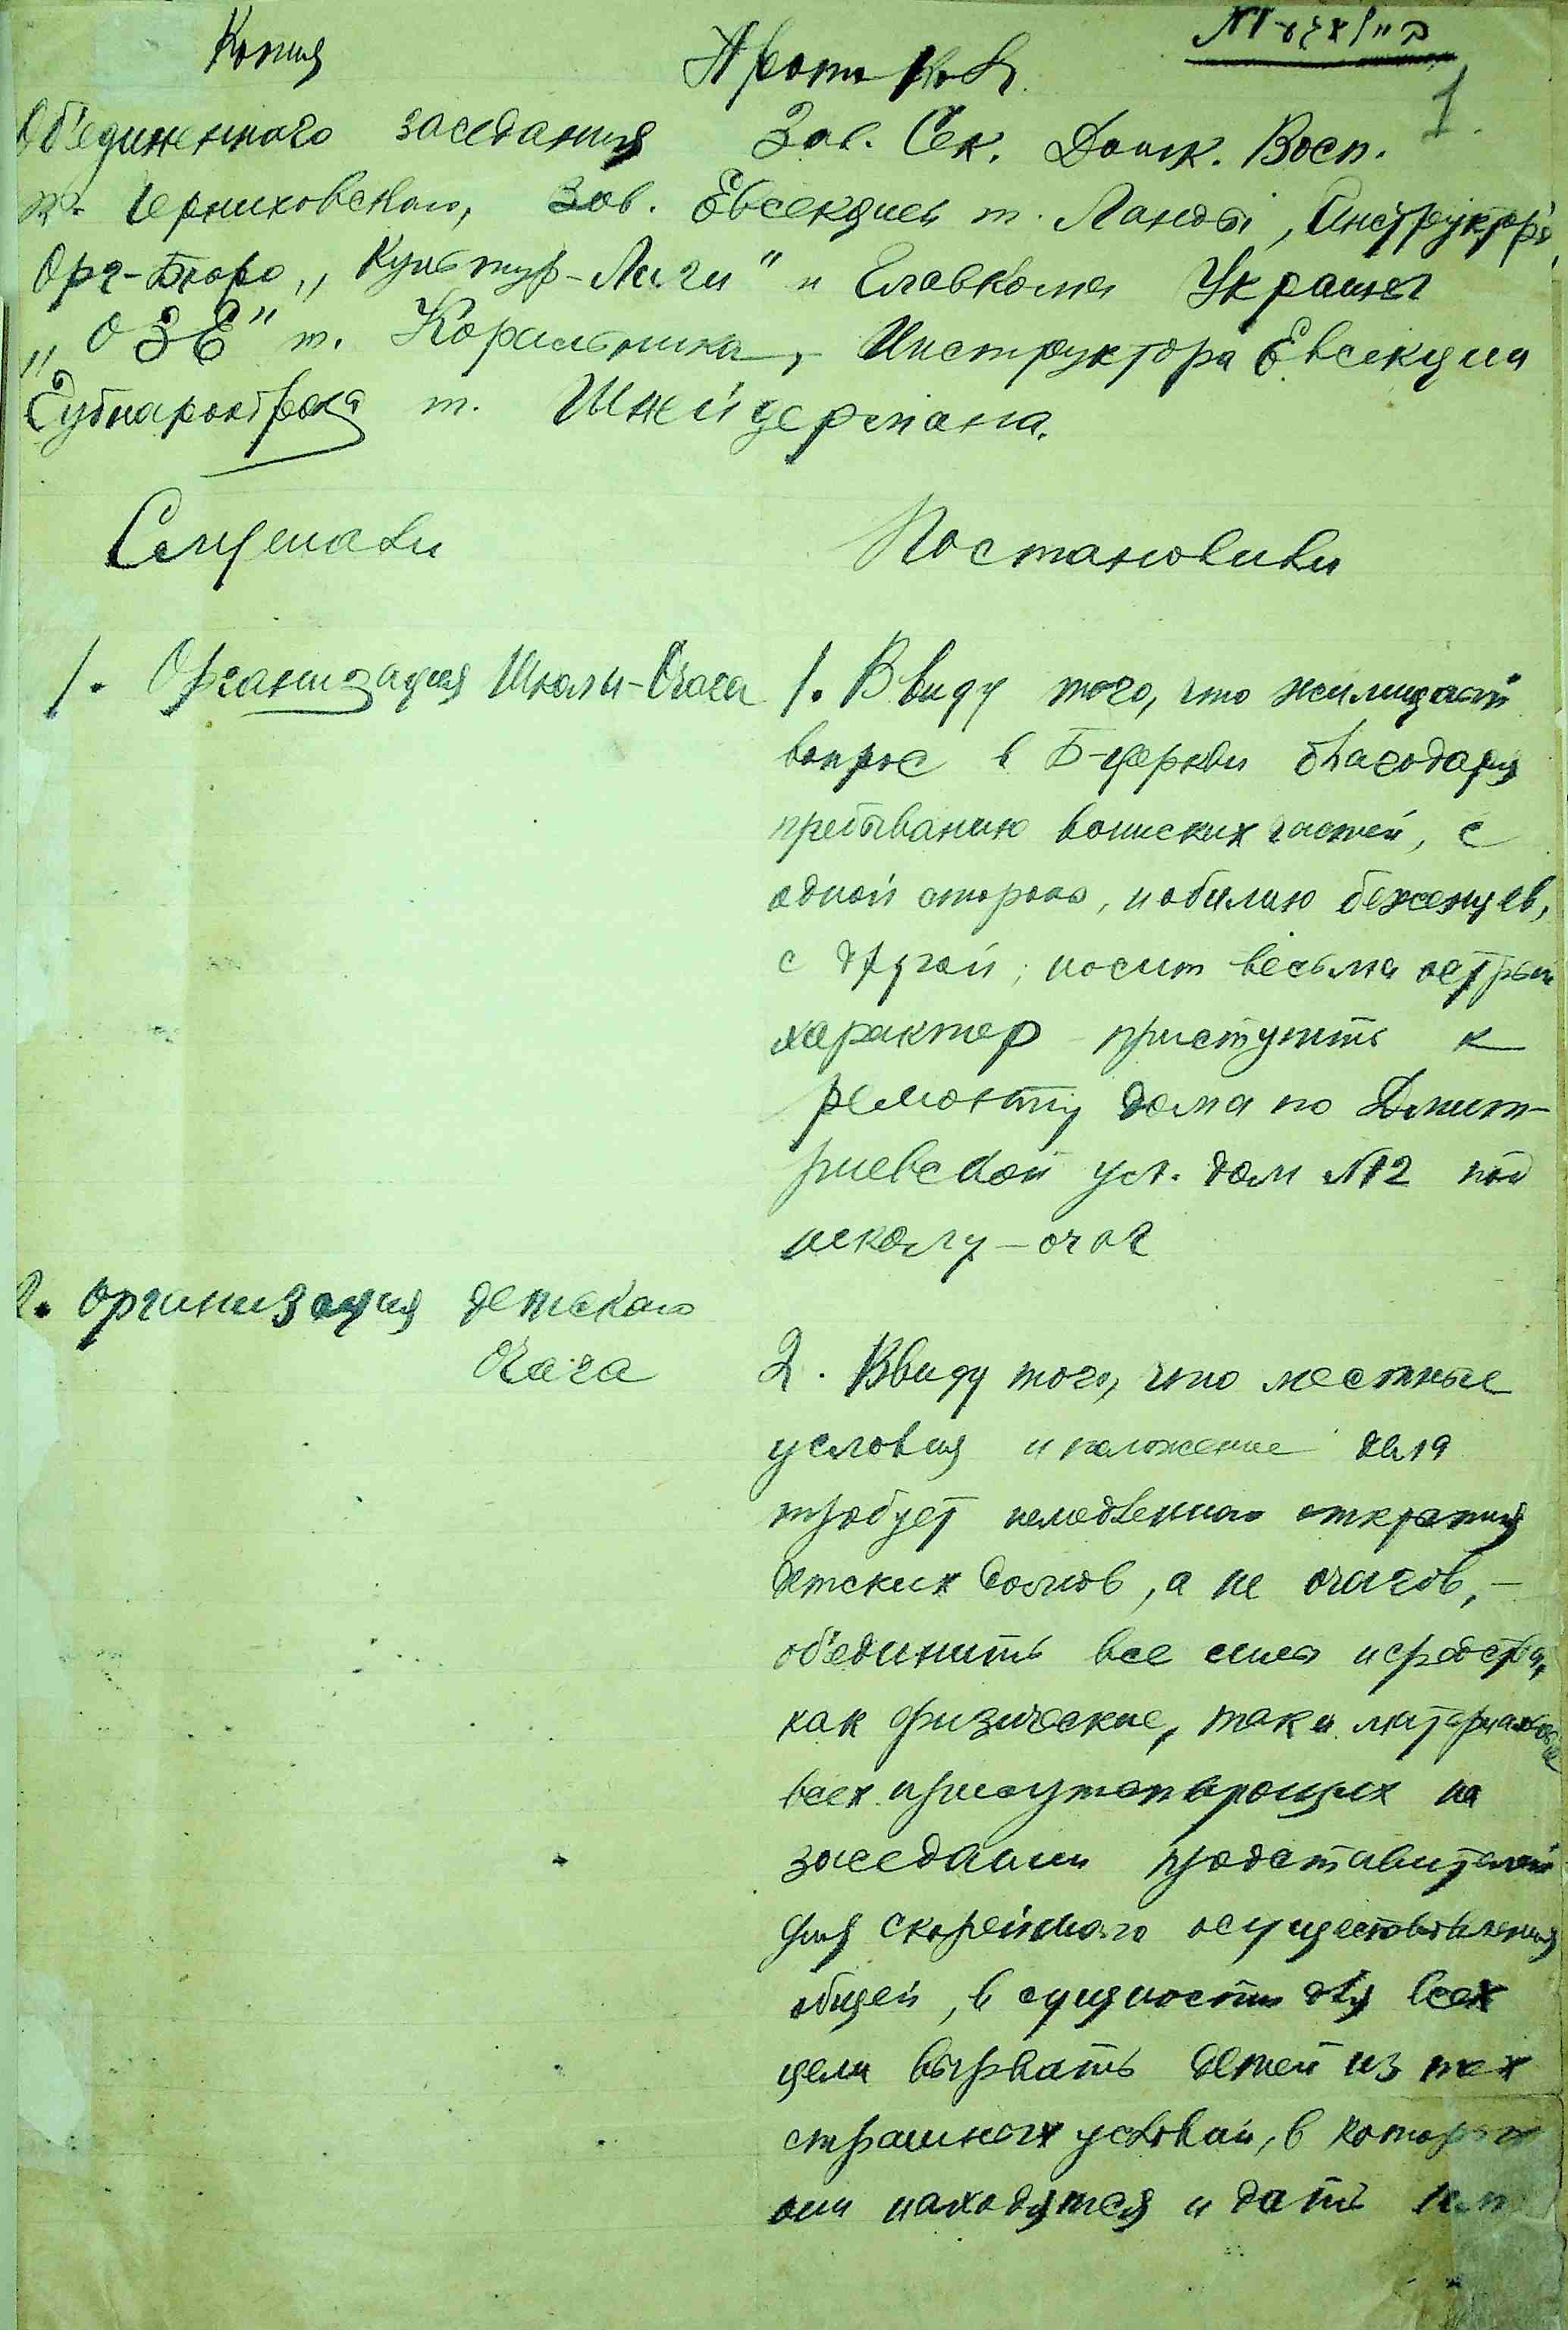 Копия
Протокол
1.
Об'единенного заседания Зав. Сек. Дошк. Восп.
т. Черниховского, Зав. Евсекцией т. Ланды, Инструктора
Орг-Бюро „Культур-Лиги" и Главкома Украины
„ОЗЕ" т. Корильника, Инструктора Евсекции
Губнаробраза т. Шнейдермана.
Слушали
Постановили
1. Организация Школы-Очага
1. Ввиду того, что жилищный
вопрос в Б-церкви благодаря
пребыванию воинских частей, с
одной стороны, и обилию беженцев,
с другой, носит весьма острый
характер приступить к
ремонту дома по Дмит-
риевской ул. дом №12 под
школу-очаг
2. Организация детского
Очага
2. Ввиду того, что местные
условия и положение дела
требует немедленного открытия
детских домов, а не очагов, –
об'единить все силы и средства,
как физические, так и материальные
всех присутствующих на
заседании представителей
для скорейшего осуществления
общей, в сущности для всех
цели вырвать детей из тех
страшных условий, в которых
они находятся и дать им